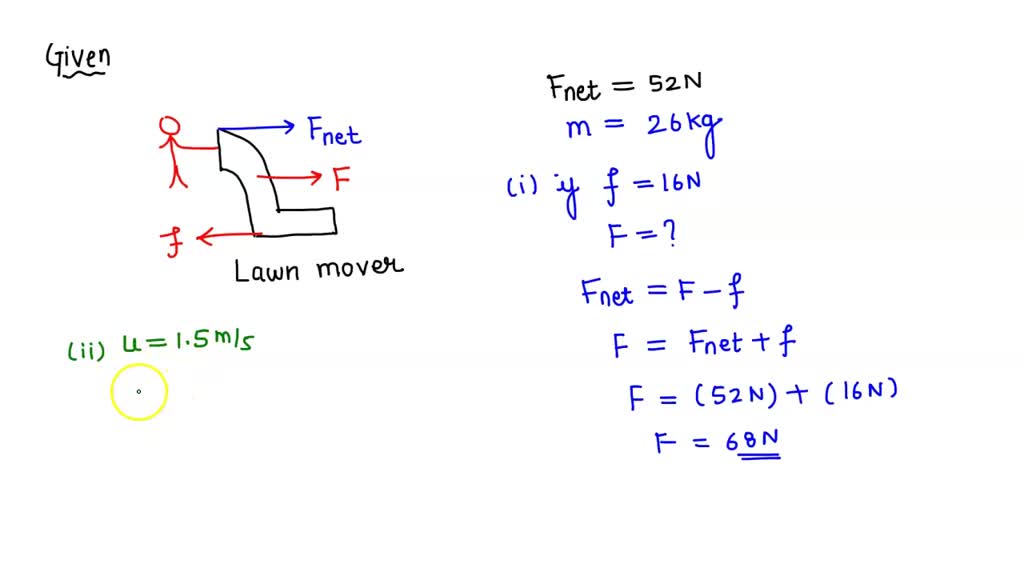 Given
F_net
F
f
Lawn mover
(ii) u = 1.5 m/s
F_net = 52N
m = 26kg
(i) iy f = 16N
F = ?
F_net = F - f
F = F_net + f
F = (52N) + (16N)
F = 68N